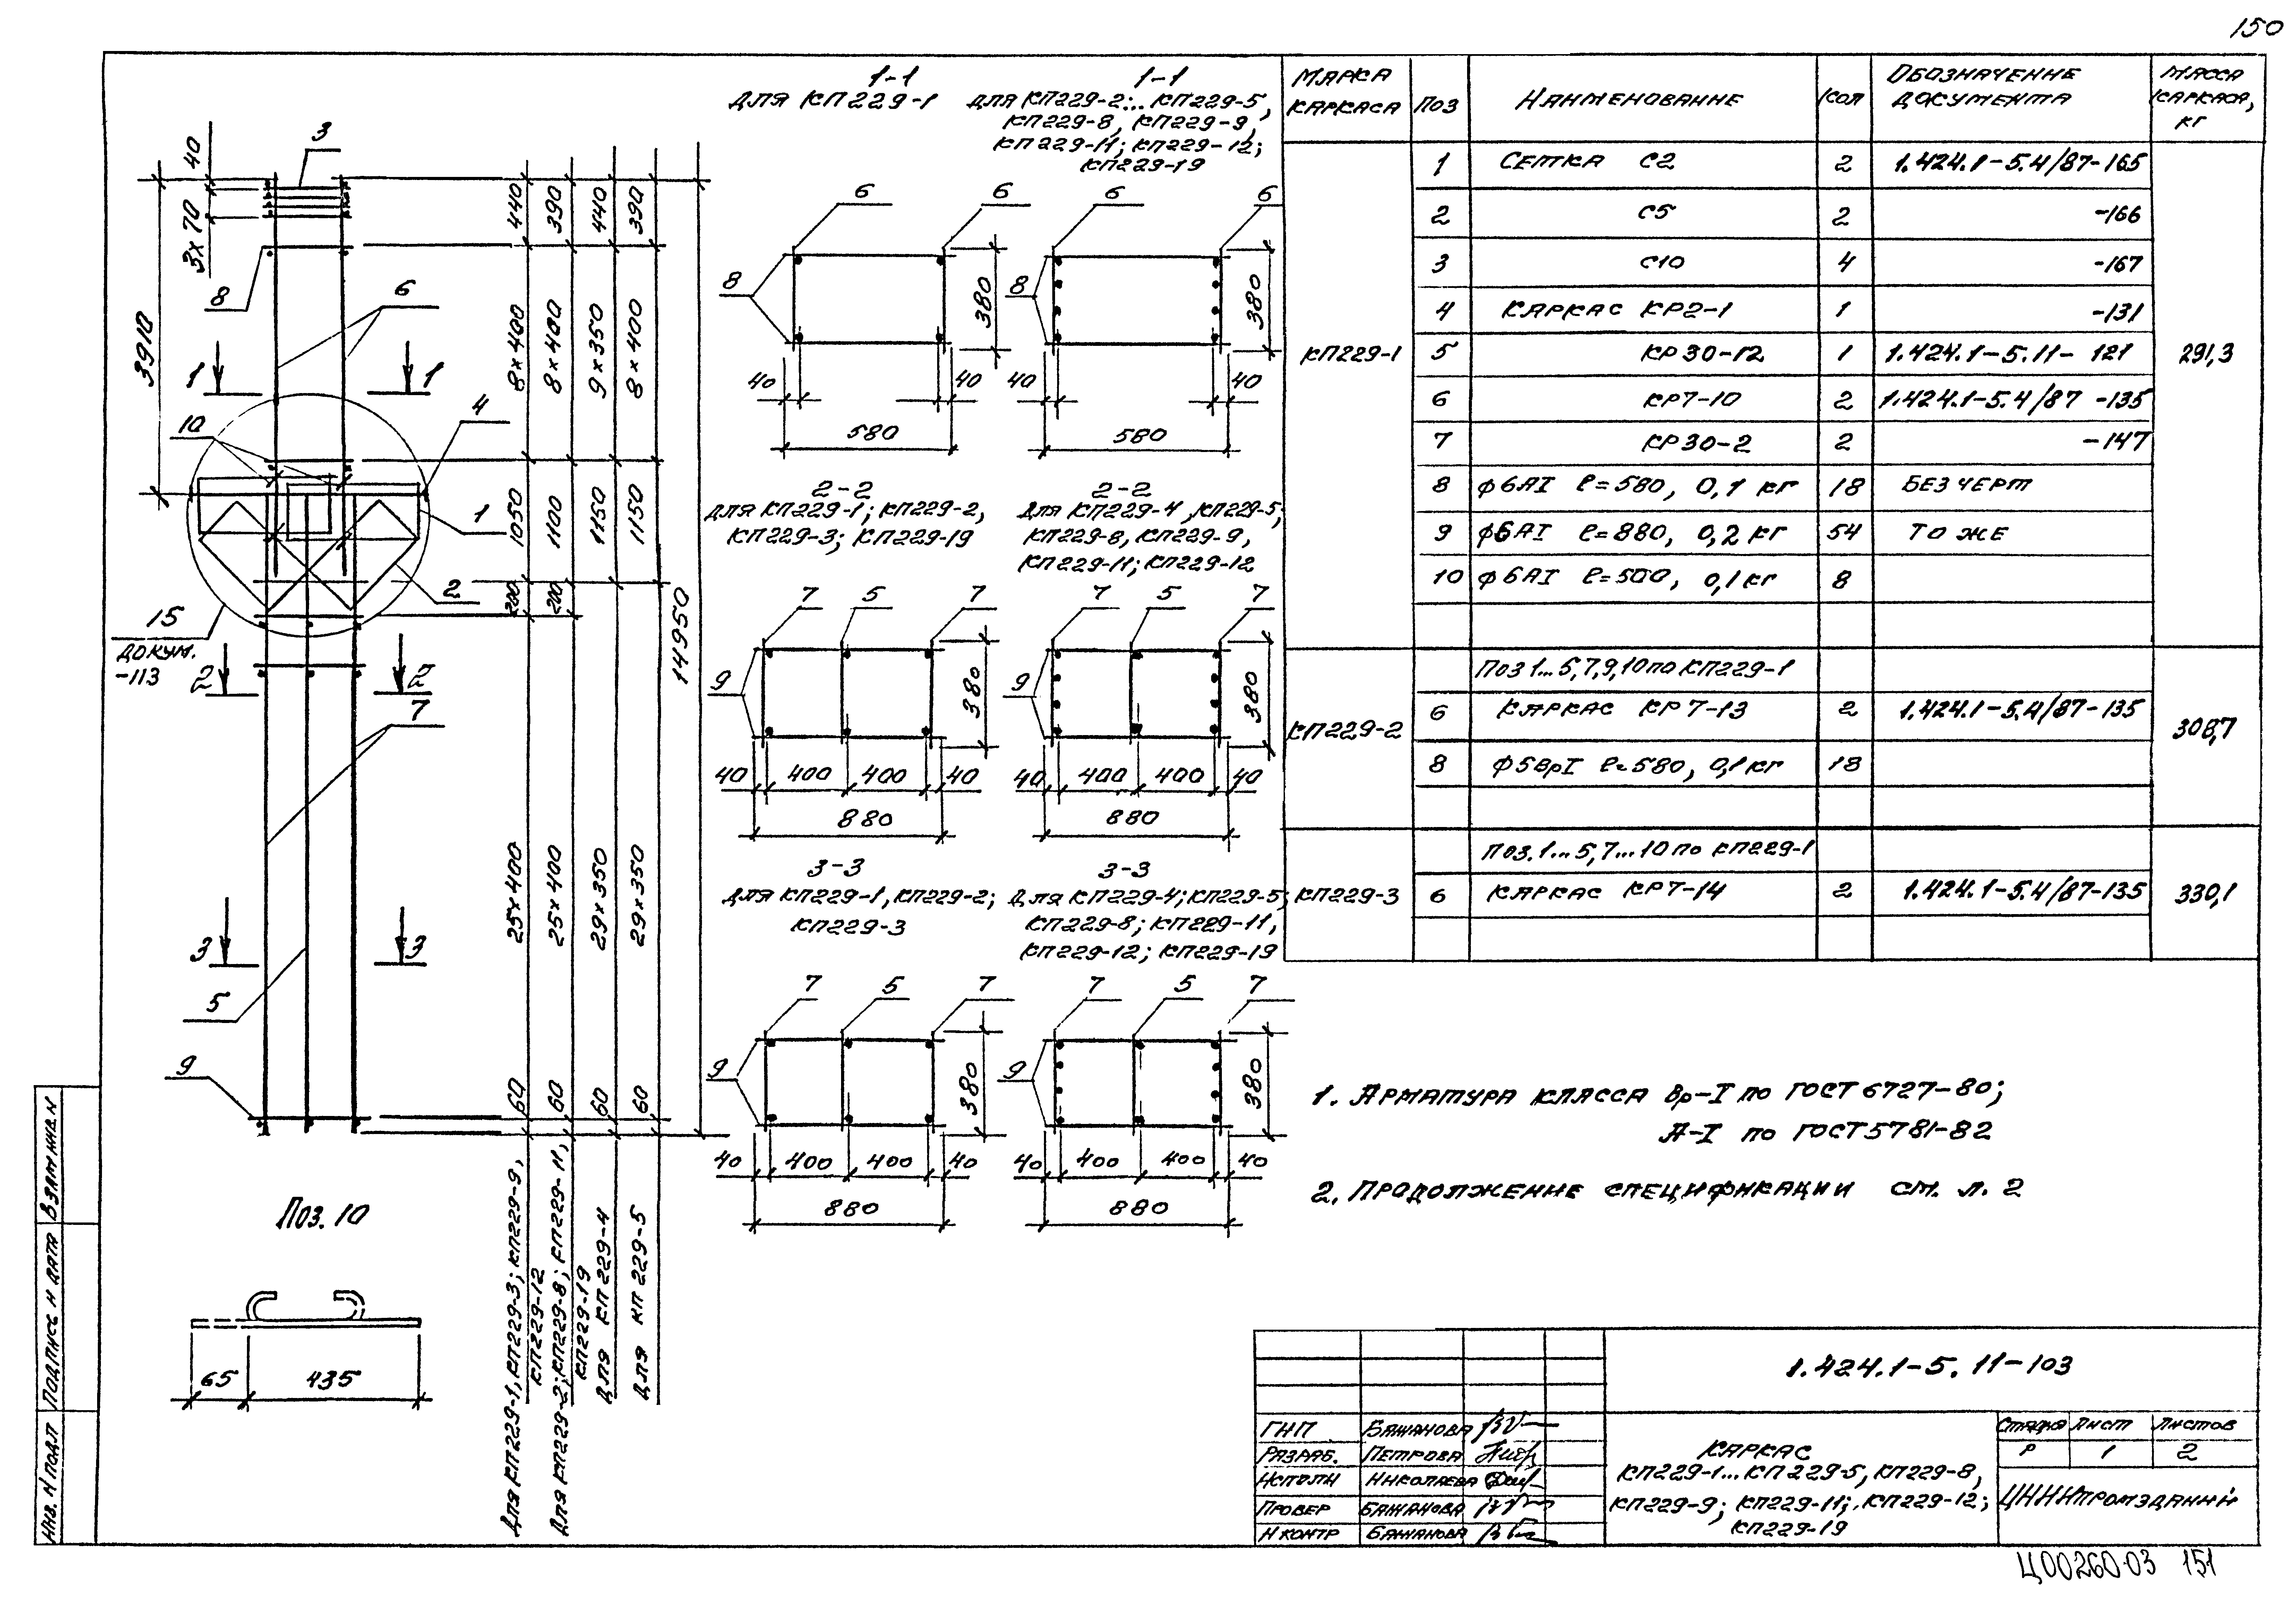 150
1-1
ДЛЯ КП229-1
1-1
ДЛЯ КП229-2... КП229-5,
КП229-8, КП229-9,
КП229-11; КП229-12;
КП229-19
6 6 8 380 40 40 580
6 6 8 380 40 40 580
2-2
ДЛЯ КП229-1; КП229-2,
КП229-3; КП229-19
2-2
ДЛЯ КП229-4, КП229-5,
КП229-8, КП229-9,
КП229-11; КП229-12
7 5 7 9 380
40 400 400 40
880
7 5 7 9 380
40 400 400 40
880
3-3
ДЛЯ КП229-1, КП229-2;
КП229-3
3-3
ДЛЯ КП229-4; КП229-5;
КП229-8; КП229-11,
КП229-12; КП229-19
7 5 7 9 380
40 400 400 40
880
7 5 7 9 380
40 400 400 40
880
40
3×70
3910
3
8
6
1 1
10
4
1
2
15
ДОКУМ.
-113
2 2
7
3 3
5
9
440 8×400 1050 200 25×400 60
390 8×400 1100 200 25×400 60
440 9×350 1150 29×350 60
390 8×400 1150 29×350 60
14950
ДЛЯ КП229-1, КП229-3; КП229-9,
КП229-12
ДЛЯ КП229-2; КП229-8; КП229-11,
КП229-19
ДЛЯ КП229-4
ДЛЯ КП229-5
ПОЗ. 10
65 435
МАРКА КАРКАСА ПОЗ НАИМЕНОВАНИЕ КОЛ ОБОЗНАЧЕНИЕ ДОКУМЕНТА МАССА КАРКАСА, КГ
КП229-1 291,3
1 СЕТКА С2 2 1.424.1-5.4/87-165
2 С5 2 -166
3 С10 4 -167
4 КАРКАС КР2-1 1 -131
5 КР30-12 1 1.424.1-5.11- 121
6 КР7-10 2 1.424.1-5.4/87 -135
7 КР30-2 2 -147
8 ф6АI ℓ=580, 0,1 кг 18 БЕЗ ЧЕРТ
9 ф6АI ℓ=880, 0,2 кг 54 ТО ЖЕ
10 ф6АI ℓ=500, 0,1 кг 8
КП229-2 308,7
Поз 1...5,7,9,10 по КП229-1
6 КАРКАС КР7-13 2 1.424.1-5.4/87-135
8 ф5ВрI ℓ=580, 0,1 кг 18
КП229-3 330,1
Поз. 1...5,7...10 по КП229-1
6 КАРКАС КР7-14 2 1.424.1-5.4/87-135
1. АРМАТУРА КЛАССА Вр-I по ГОСТ 6727-80;
А-I по ГОСТ 5781-82
2. ПРОДОЛЖЕНИЕ СПЕЦИФИКАЦИИ СМ. Л. 2
1.424.1-5.11-103
ГИП БАЖАНОВА
РАЗРАБ. ПЕТРОВА
ИСПОЛН НИКОЛАЕВА
ПРОВЕР БАЖАНОВА
Н КОНТР БАЖАНОВА
КАРКАС
КП229-1...КП229-5, КП229-8,
КП229-9; КП229-11; КП229-12;
КП229-19
СТАДИЯ ЛИСТ ЛИСТОВ
Р 1 2
ЦНИИПРОМЗДАНИЙ
ИНВ. N ПОДЛ ПОДПИСЬ И ДАТА ВЗАМ ИНВ. N
Ц00260-03 151